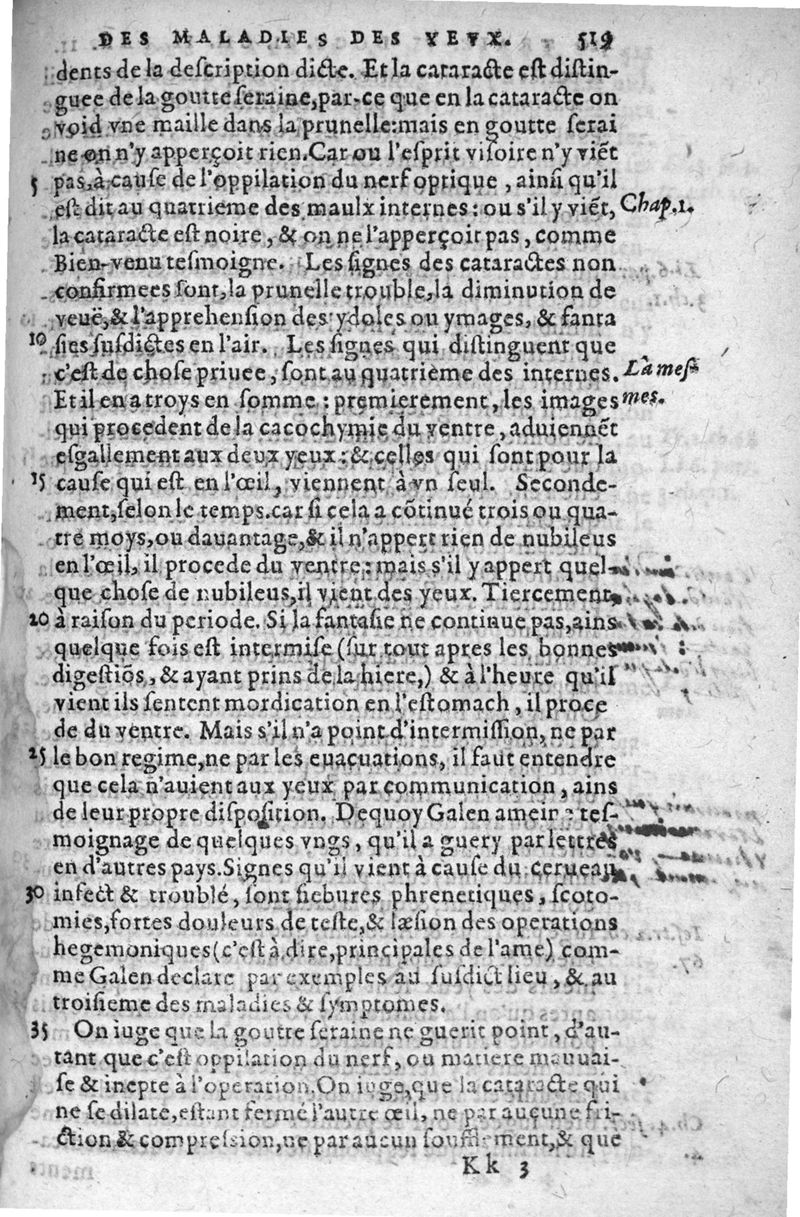 DES MALADIES DES YEVX. 519
dents de la deſcription dicte. Et la cataracte eſt diſtin-
guee de la goutte ſeraine, par-ce que en la cataracte on
void vne maille dans la prunelle: mais en goutte ſerai
ne on n'y apperçoit rien. Car ou l'eſprit viſoire n'y viẽt
5 pas, à cauſe de l'oppilation du nerf optique, ainſi qu'il
eſt dit au quatrieme des maulx internes: ou s'il y viẽt, Chap. 1.
la cataracte eſt noire, & on ne l'apperçoit pas, comme
Bien-venu teſmoigne. Les ſignes des cataractes non
confirmees ſont, la prunelle trouble, la diminution de
veuë, & l'apprehenſion des ydoles ou ymages, & fanta
10 ſies ſuſdictes en l'air. Les ſignes qui diſtinguent que
c'eſt de choſe priuee, ſont au quatrieme des internes. Là meſ
Et il en a troys en ſomme: premierement, les images mes.
qui procedent de la cacochymie du ventre, aduiennẽt
eſgallement aux deux yeux: & celles qui ſont pour la
15 cauſe qui eſt en l'œil, viennent à vn ſeul. Seconde-
ment, ſelon le temps. car ſi cela a cõtinué trois ou qua-
tre moys, ou dauantage, & il n'appert rien de nubileus
en l'œil, il procede du ventre: mais s'il y appert quel-
que choſe de nubileus, il vient des yeux. Tiercement,
20 à raiſon du periode. Si la fantaſie ne continue pas, ains
quelque fois eſt intermiſe (ſur tout apres les bonnes
digeſtiõs, & ayant prins de la hiere,) & à l'heure qu'il
vient ils ſentent mordication en l'eſtomach, il proce
de du ventre. Mais s'il n'a point d'intermiſſion, ne par
25 le bon regime, ne par les euacuations, il faut entendre
que cela n'auient aux yeux par communication, ains
de leur propre diſpoſition. Dequoy Galen ameine teſ-
moignage de quelques vngs, qu'il a guery par lettres
en d'autres pays. Signes qu'il vient à cauſe du cerueau
30 infect & troublé, ſont fiebures phrenetiques, ſcoto-
mies, fortes douleurs de teſte, & læſion des operations
hegemoniques (c'eſt à dire, principales de l'ame) com-
me Galen declare par exemples au ſuſdict lieu, & au
troiſieme des maladies & ſymptomes.
35 On iuge que la goutte ſeraine ne guerit point, d'au-
tant que c'eſt oppilation du nerf, ou matiere mauuai-
ſe & inepte à l'operation. On iuge, que la cataracte qui
ne ſe dilate, eſtant fermé l'autre œil, ne par aucune fri-
ction & compreſſion, ne par aucun ſoufflement, & que
Kk 3